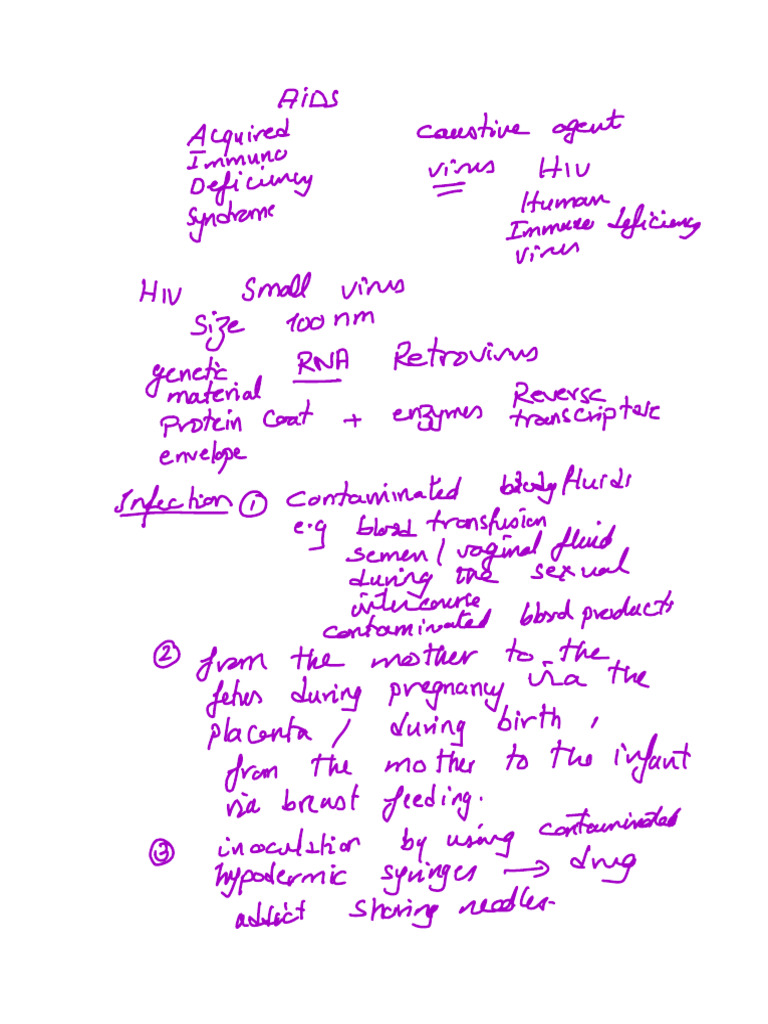 AiDS
Acquired
Immuno
Deficiency
Syndrome
Caustive agent
virus HIV
Human
Immune deficiency
virus
HIV Small virus
Size 100 nm
genetic RNA Retrovirus
material
Protein Coat + enzymes Reverse
transcriptase
envelope
Infection ① Contaminated body fluids
e.g blood transfusion
semen / vaginal fluid
during the sexual
intercourse
contaminated blood products
② from the mother to the
fetus during pregnancy via the
placenta / during birth,
from the mother to the infant
via breast feeding.
③ inoculation by using contaminated
hypodermic syringes → drug
addict sharing needles.